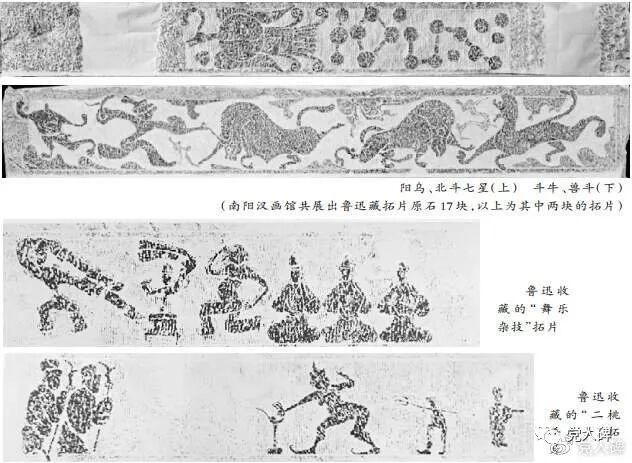 阳乌、北斗七星(上) 斗牛、兽斗(下)
(南阳汉画馆共展出鲁迅藏拓片原石17块,以上为其中两块的拓片)
鲁迅收
藏的“舞乐
杂技”拓片
鲁迅收
藏的“二桃
拓
党人碑
党人碑